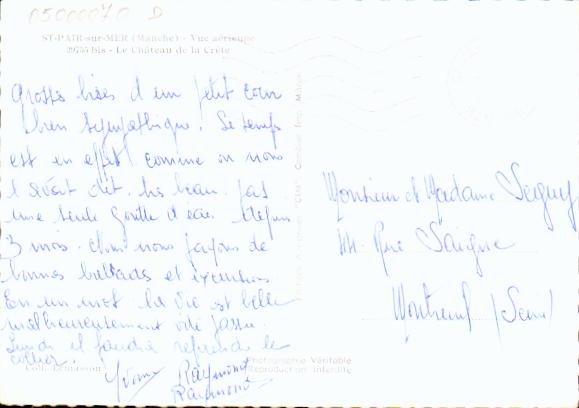 05000070 D
ST-PAIR-sur-MER (Manche) - Vue aérienne
29755 bis - Le Château de la Crête
Grosses bises d'un petit coin
bien sympathique. Le temps
est en effet comme on nous
l'avait dit. très beau. pas
une seule goutte d'eau depuis
3 mois. nous faisons de
bonnes ballades et excursions
En un mot la vie est belle
malheureusement vite passée
Lundi il faudra reprendre le
collier.
Yvonne Raymond
Raymonde
Monsieur et Madame Seguy
Rue Saigne
Montreuil (Seine)
Photographie Véritable
Reproduction Interdite